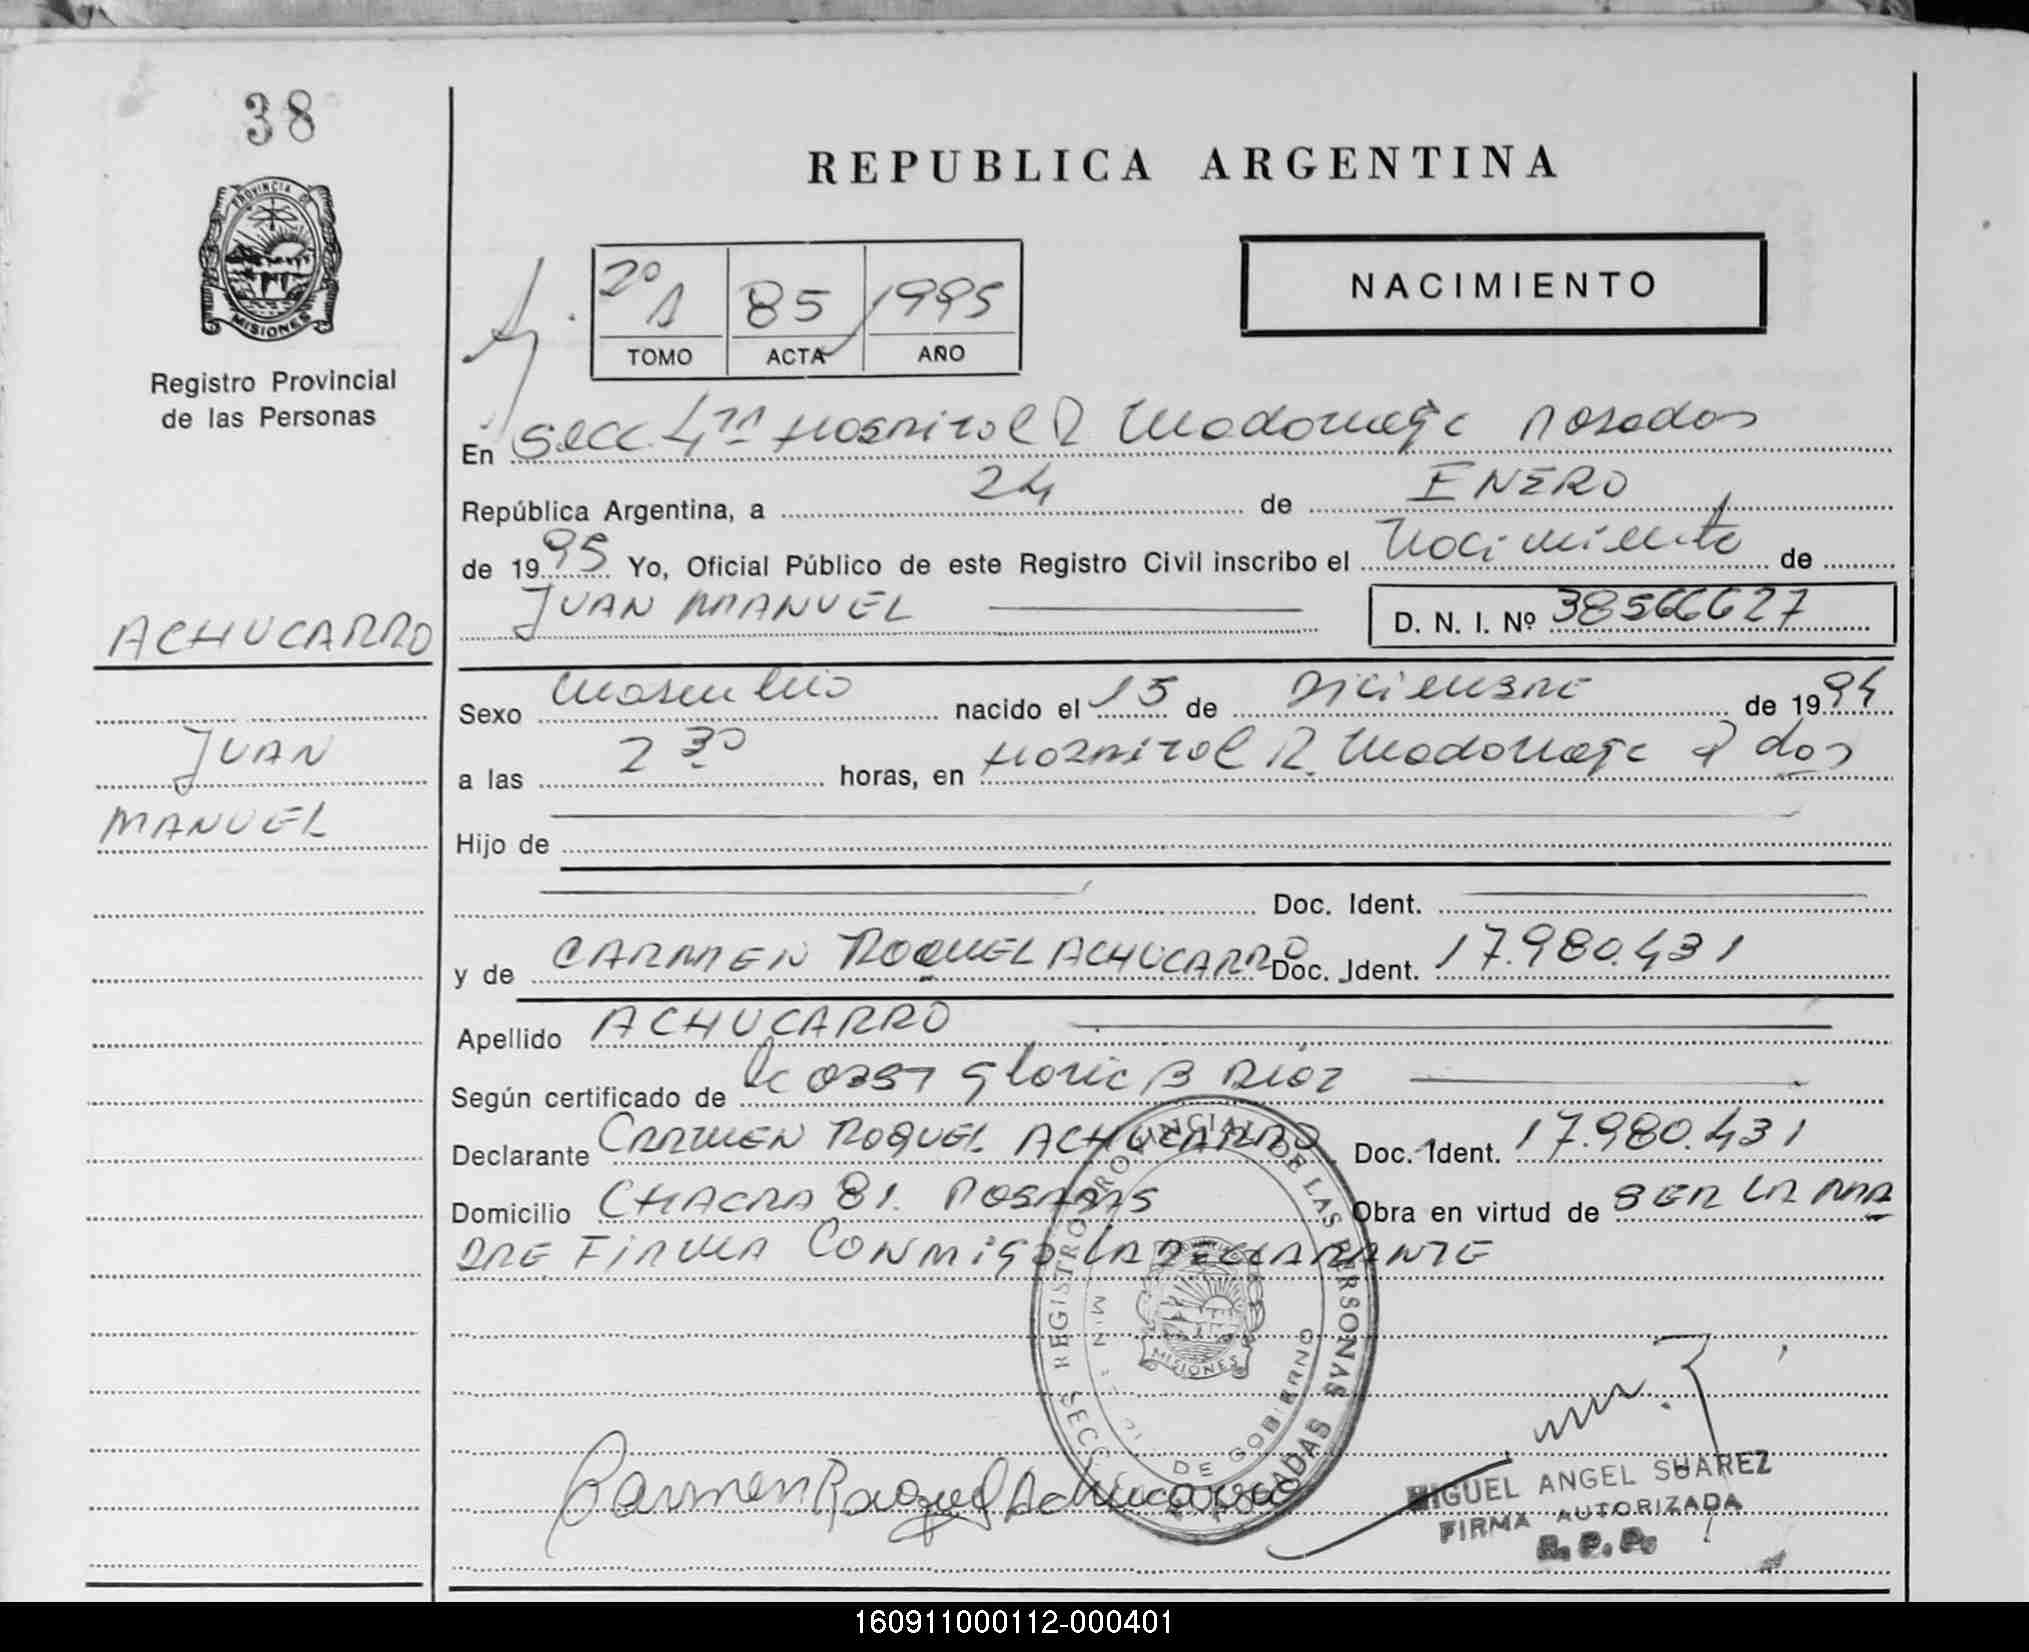 38
PROVINCIA DE
MISIONES
Registro Provincial
de las Personas
ACHUCARRO
JUAN
MANUEL
REPUBLICA ARGENTINA
NACIMIENTO
2º A 85 1995
TOMO ACTA AÑO
En Secc. 4ta Hospital R Madariaga Posadas
República Argentina, a 24 de ENERO
de 1995 Yo, Oficial Público de este Registro Civil inscribo el Nacimiento de
JUAN MANUEL D. N. I. Nº 38566627
Sexo Masculino nacido el 15 de Diciembre de 1994
a las 2 30 horas, en Hospital R. Madariaga Pdas
Hijo de
Doc. Ident.
y de CARMEN RAQUEL ACHUCARRO Doc. Ident. 17.980.431
Apellido ACHUCARRO
Según certificado de la Obst Gloria B Diaz
Declarante CARMEN RAQUEL ACHUCARRO Doc. Ident. 17.980.431
Domicilio CHACRA 81. POSADAS Obra en virtud de SER LA MA
DRE FIRMA CONMIGO LA DECLARANTE
REGISTRO PROVINCIAL DE LAS PERSONAS
SECC POSADAS
DE GOBIERNO
MISIONES
Carmen Raquel Achucarro
MIGUEL ANGEL SUAREZ
FIRMA AUTORIZADA
R. P. P.
160911000112-000401